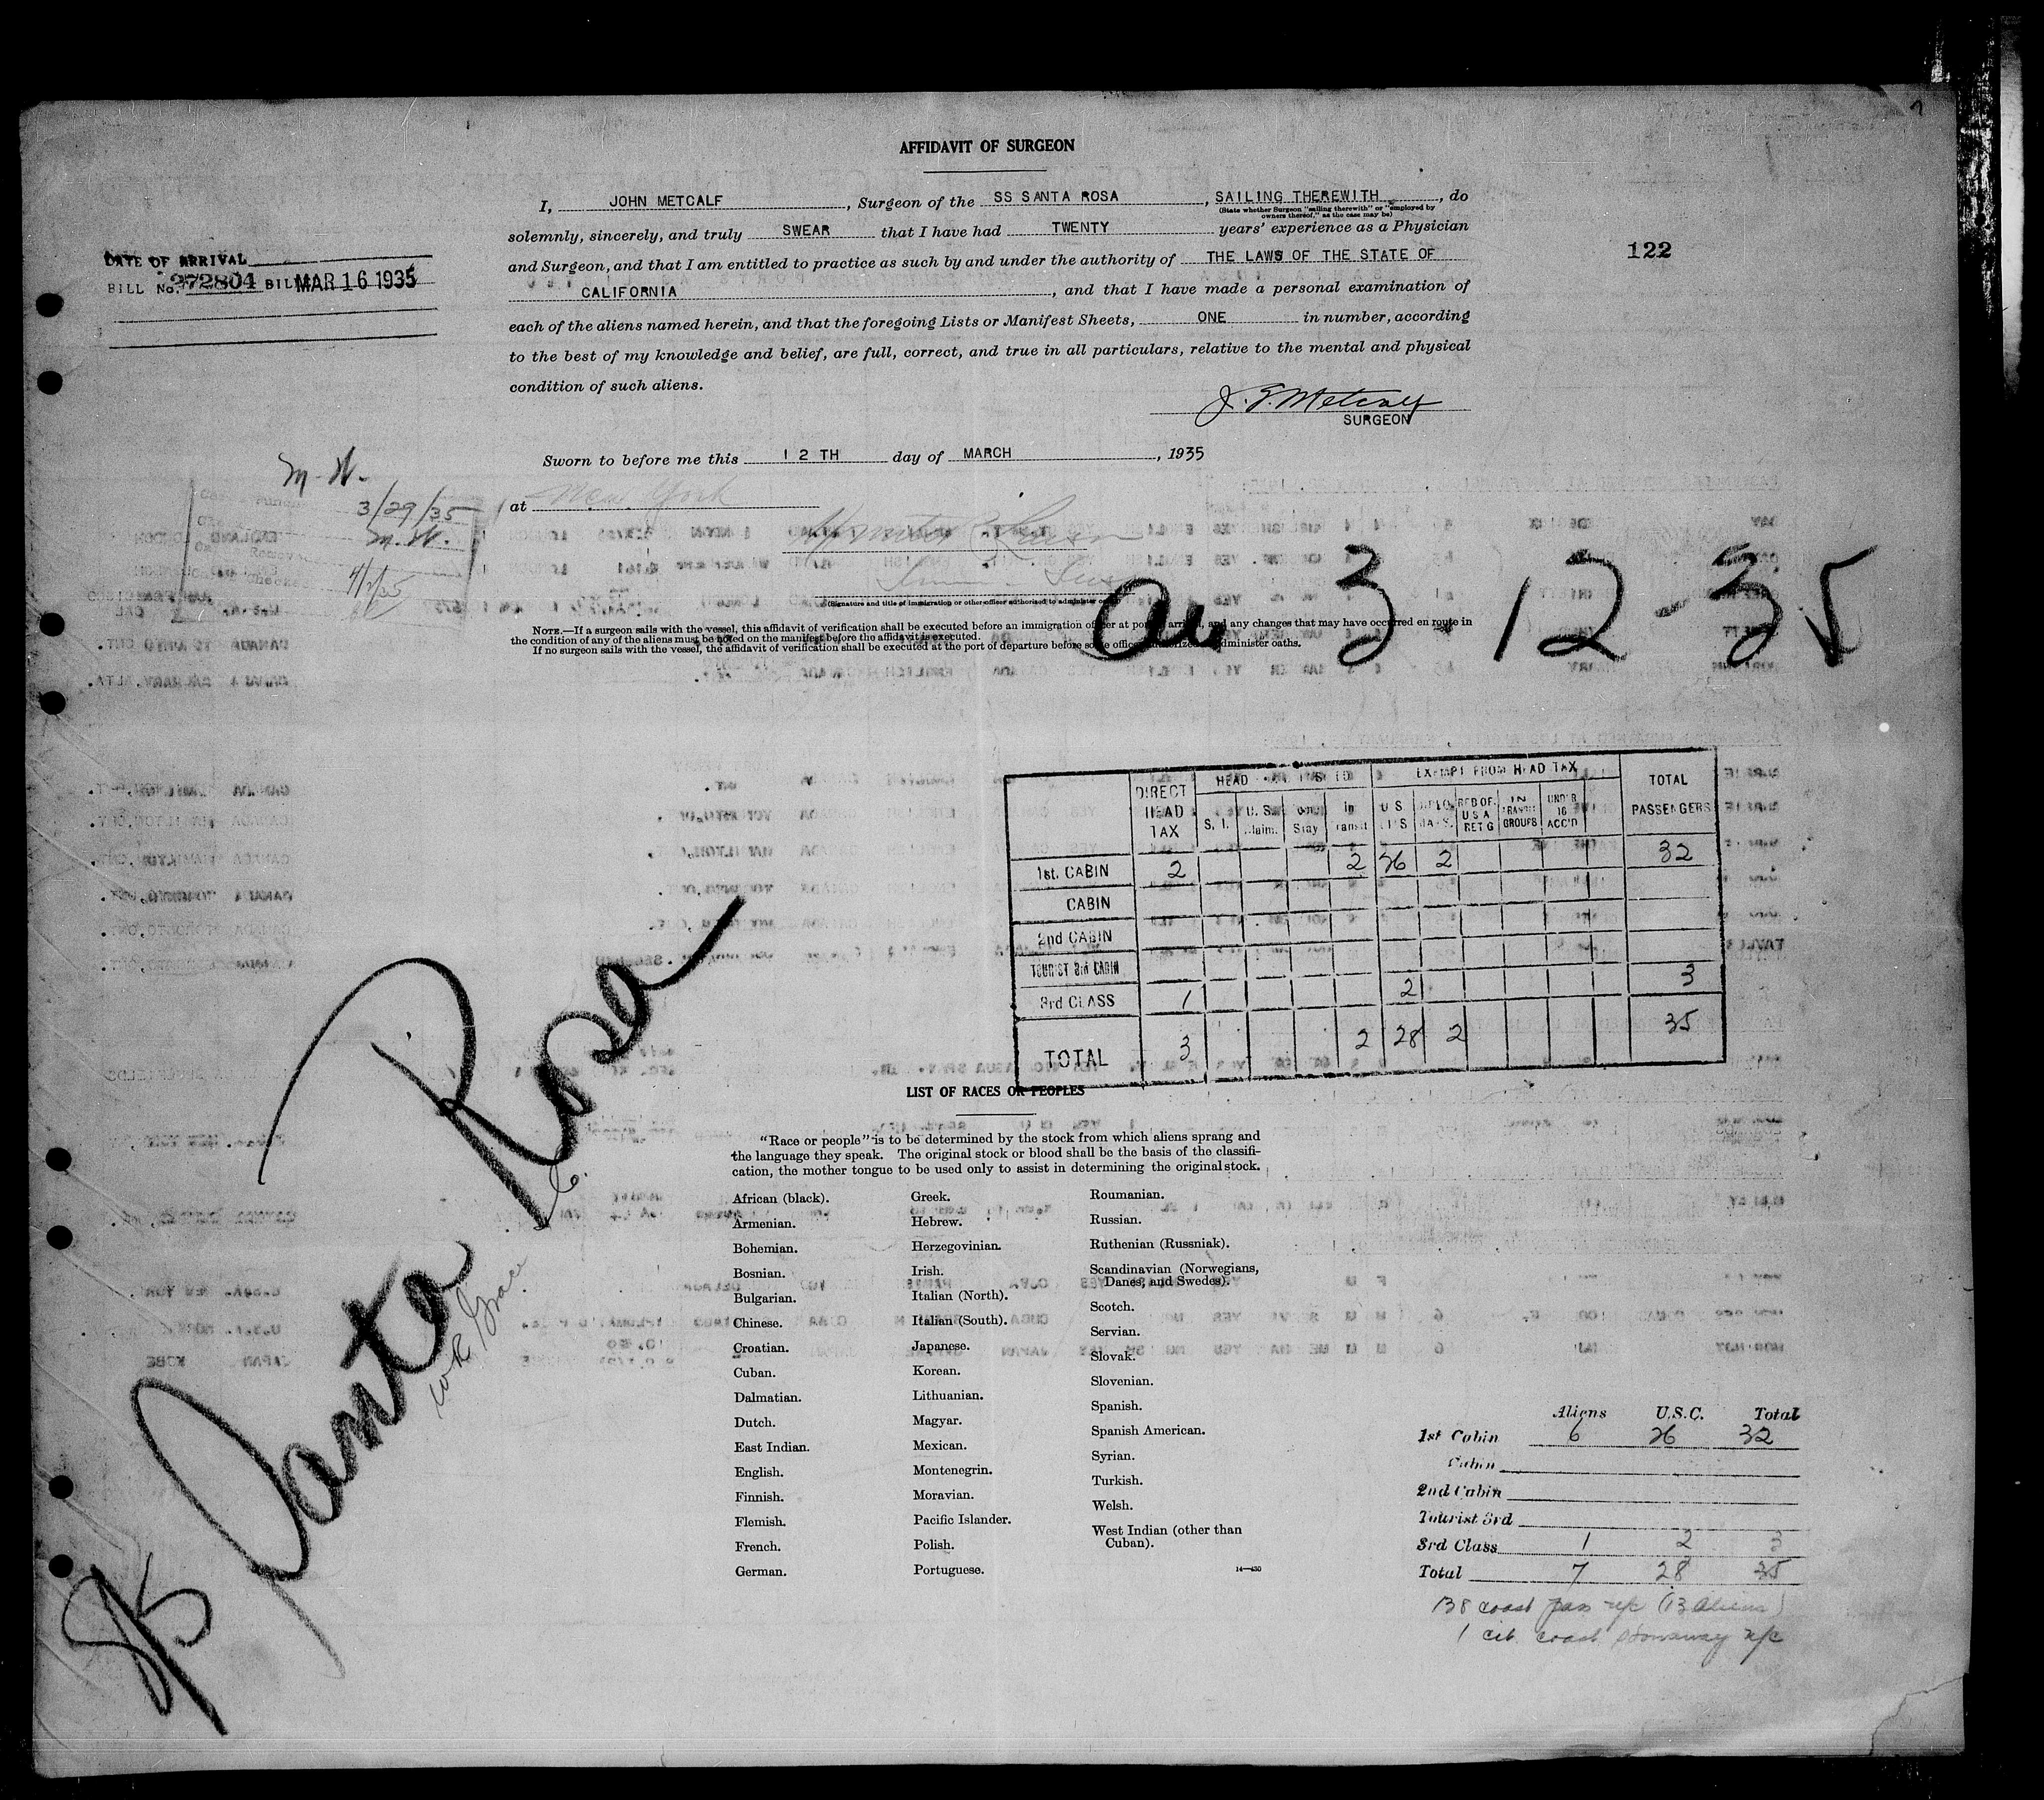 AFFIDAVIT OF SURGEON
I, JOHN METCALF, Surgeon of the SS SANTA ROSA, SAILING THEREWITH, do
(State whether Surgeon "sailing therewith" or "employed by
owners thereof," as the case may be)
solemnly, sincerely, and truly SWEAR that I have had TWENTY years' experience as a Physician
and Surgeon, and that I am entitled to practice as such by and under the authority of THE LAWS OF THE STATE OF
CALIFORNIA, and that I have made a personal examination of
each of the aliens named herein, and that the foregoing Lists or Manifest Sheets, ONE in number, according
to the best of my knowledge and belief, are full, correct, and true in all particulars, relative to the mental and physical
condition of such aliens.
DATE OF ARRIVAL
BILL No. 272804 MAR 16 1935
122
J. F. Metcalf
SURGEON
Sworn to before me this 12TH day of MARCH, 1935
at New York
M. W.
3/29/35
M. W.
(Signature and title of immigration or other officer authorized to administer
NOTE.—If a surgeon sails with the vessel, this affidavit of verification shall be executed before an immigration officer at port of arrival, and any changes that may have occurred en route in
the condition of any of the aliens must be noted on the manifest before the affidavit is executed.
If no surgeon sails with the vessel, the affidavit of verification shall be executed at the port of departure before some officer authorized to administer oaths.
3-12-35
HEAD EXEMPT FROM HEAD TAX
DIRECT HEAD TAX S. I. U. S. Claim. Stay In Transit U.S. REP. OF U S A RET'G IN TRANSIT GROUPS UNDER 16 ACC'D TOTAL PASSENGERS
1st. CABIN 2 2 26 2 32
CABIN
2nd CABIN
TOURIST 3rd CABIN
3rd CLASS 1 2 3
TOTAL 3 2 28 2 35
S/S Santa Rosa
LIST OF RACES OR PEOPLES
"Race or people" is to be determined by the stock from which aliens sprang and
the language they speak. The original stock or blood shall be the basis of the classifi-
cation, the mother tongue to be used only to assist in determining the original stock.
African (black).
Armenian.
Bohemian.
Bosnian.
Bulgarian.
Chinese.
Croatian.
Cuban.
Dalmatian.
Dutch.
East Indian.
English.
Finnish.
Flemish.
French.
German.
Greek.
Hebrew.
Herzegovinian.
Irish.
Italian (North).
Italian (South).
Japanese.
Korean.
Lithuanian.
Magyar.
Mexican.
Montenegrin.
Moravian.
Pacific Islander.
Polish.
Portuguese.
Roumanian.
Russian.
Ruthenian (Russniak).
Scandinavian (Norwegians,
Danes, and Swedes).
Scotch.
Servian.
Slovak.
Slovenian.
Spanish.
Spanish American.
Syrian.
Turkish.
Welsh.
West Indian (other than
Cuban).
14—430
Aliens U.S.C. Total
1st Cabin 6 26 32
Cabin
2nd Cabin
Tourist 3rd
3rd Class 1 2 3
Total 7 28 35
138 coast pass n/c (13 aliens)
1 cit. coast stowaway n/c